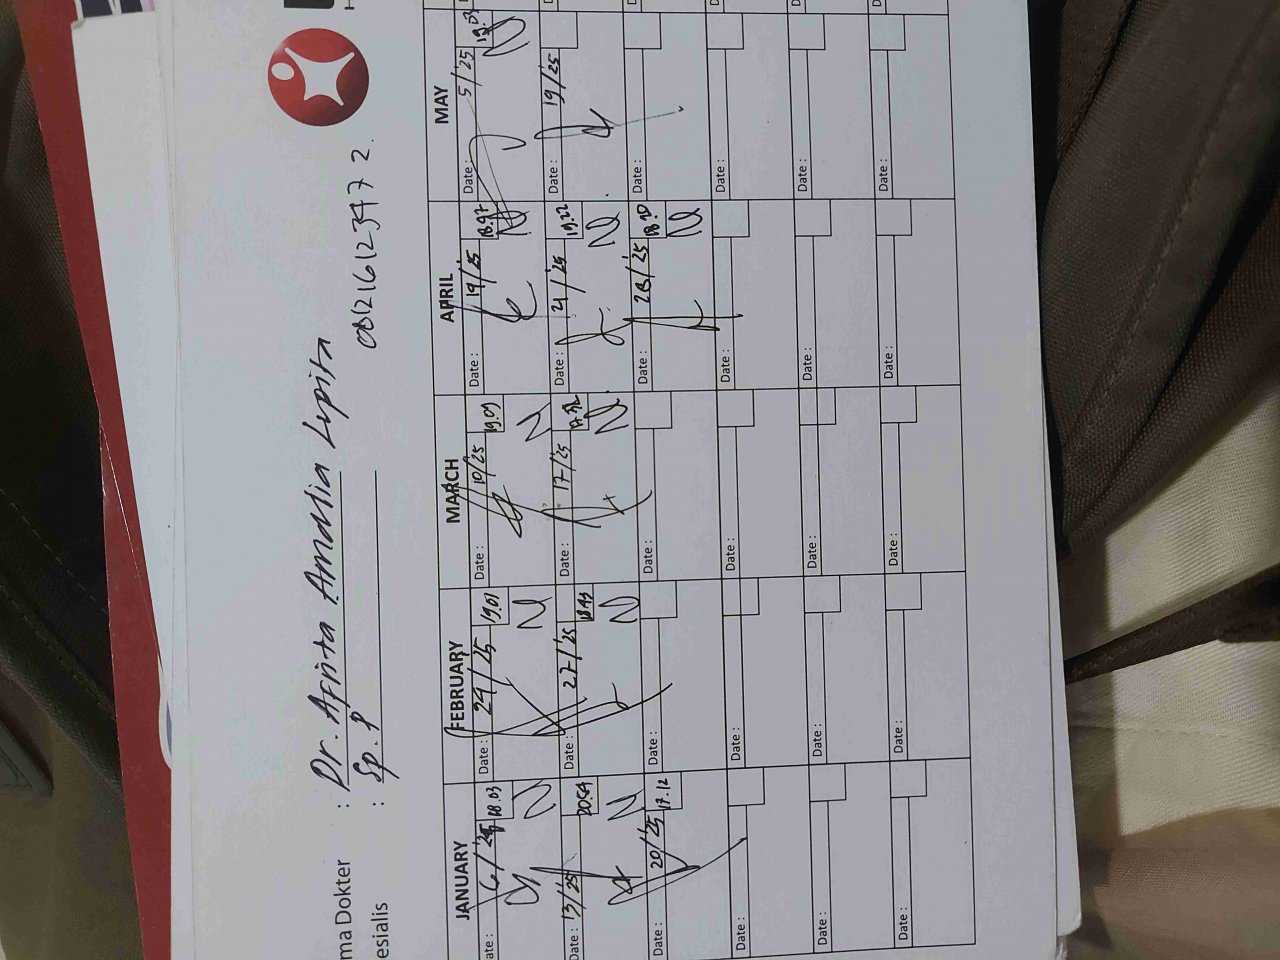 ma Dokter : Dr. Afrita Amalia Lupita
esialis : Sp. P 081216123472
JANUARY FEBRUARY MARCH APRIL MAY
ate : 6/'25 18.03 Date : 24/'25 19.01 Date : 10/25 19.09 Date : 19/'25 18.47 Date : 5/'25 19.03
N N N N N
Date : 13/'25 20.54 Date : 27/'25 18.43 Date : 17/'25 Date : 21/'25 19.22 Date : 19/'25
N N N N
Date : 20/'25 17.12 Date : Date : Date : 28/'25 Date :
N
Date : Date : Date : Date : Date :
Date : Date : Date : Date : Date :
Date : Date : Date : Date : Date :